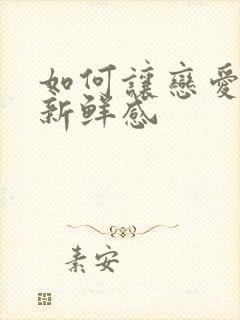 如何讓戀愛
新鮮感
素安